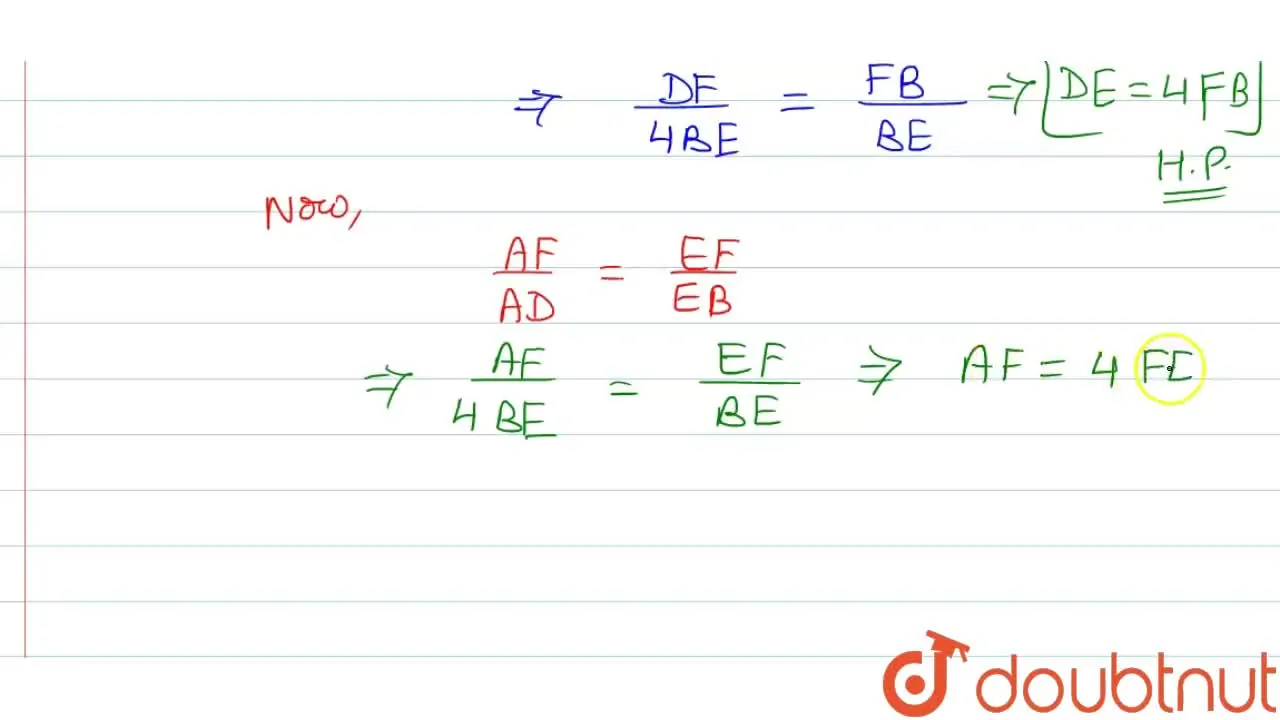 ⇒ DF/4BE = FB/BE ⇒ [DE = 4FB]
H.P.
Now,
AF/AD = EF/EB
⇒ AF/4BE = EF/BE ⇒ AF = 4 FE
doubtnut